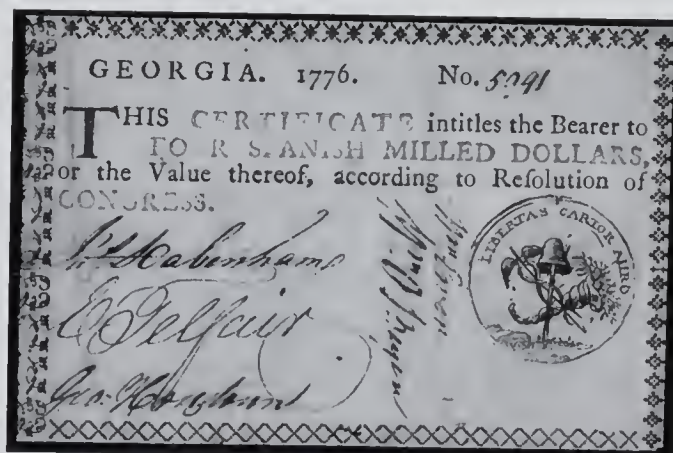 GEORGIA. 1776. No. 5091
THIS CERTIFICATE intitles the Bearer to
SPANISH MILLED DOLLARS,
or the Value thereof, according to Resolution of
CONGRESS.
Habersham
E Telfair
LIBERTAS CARIOR AURO